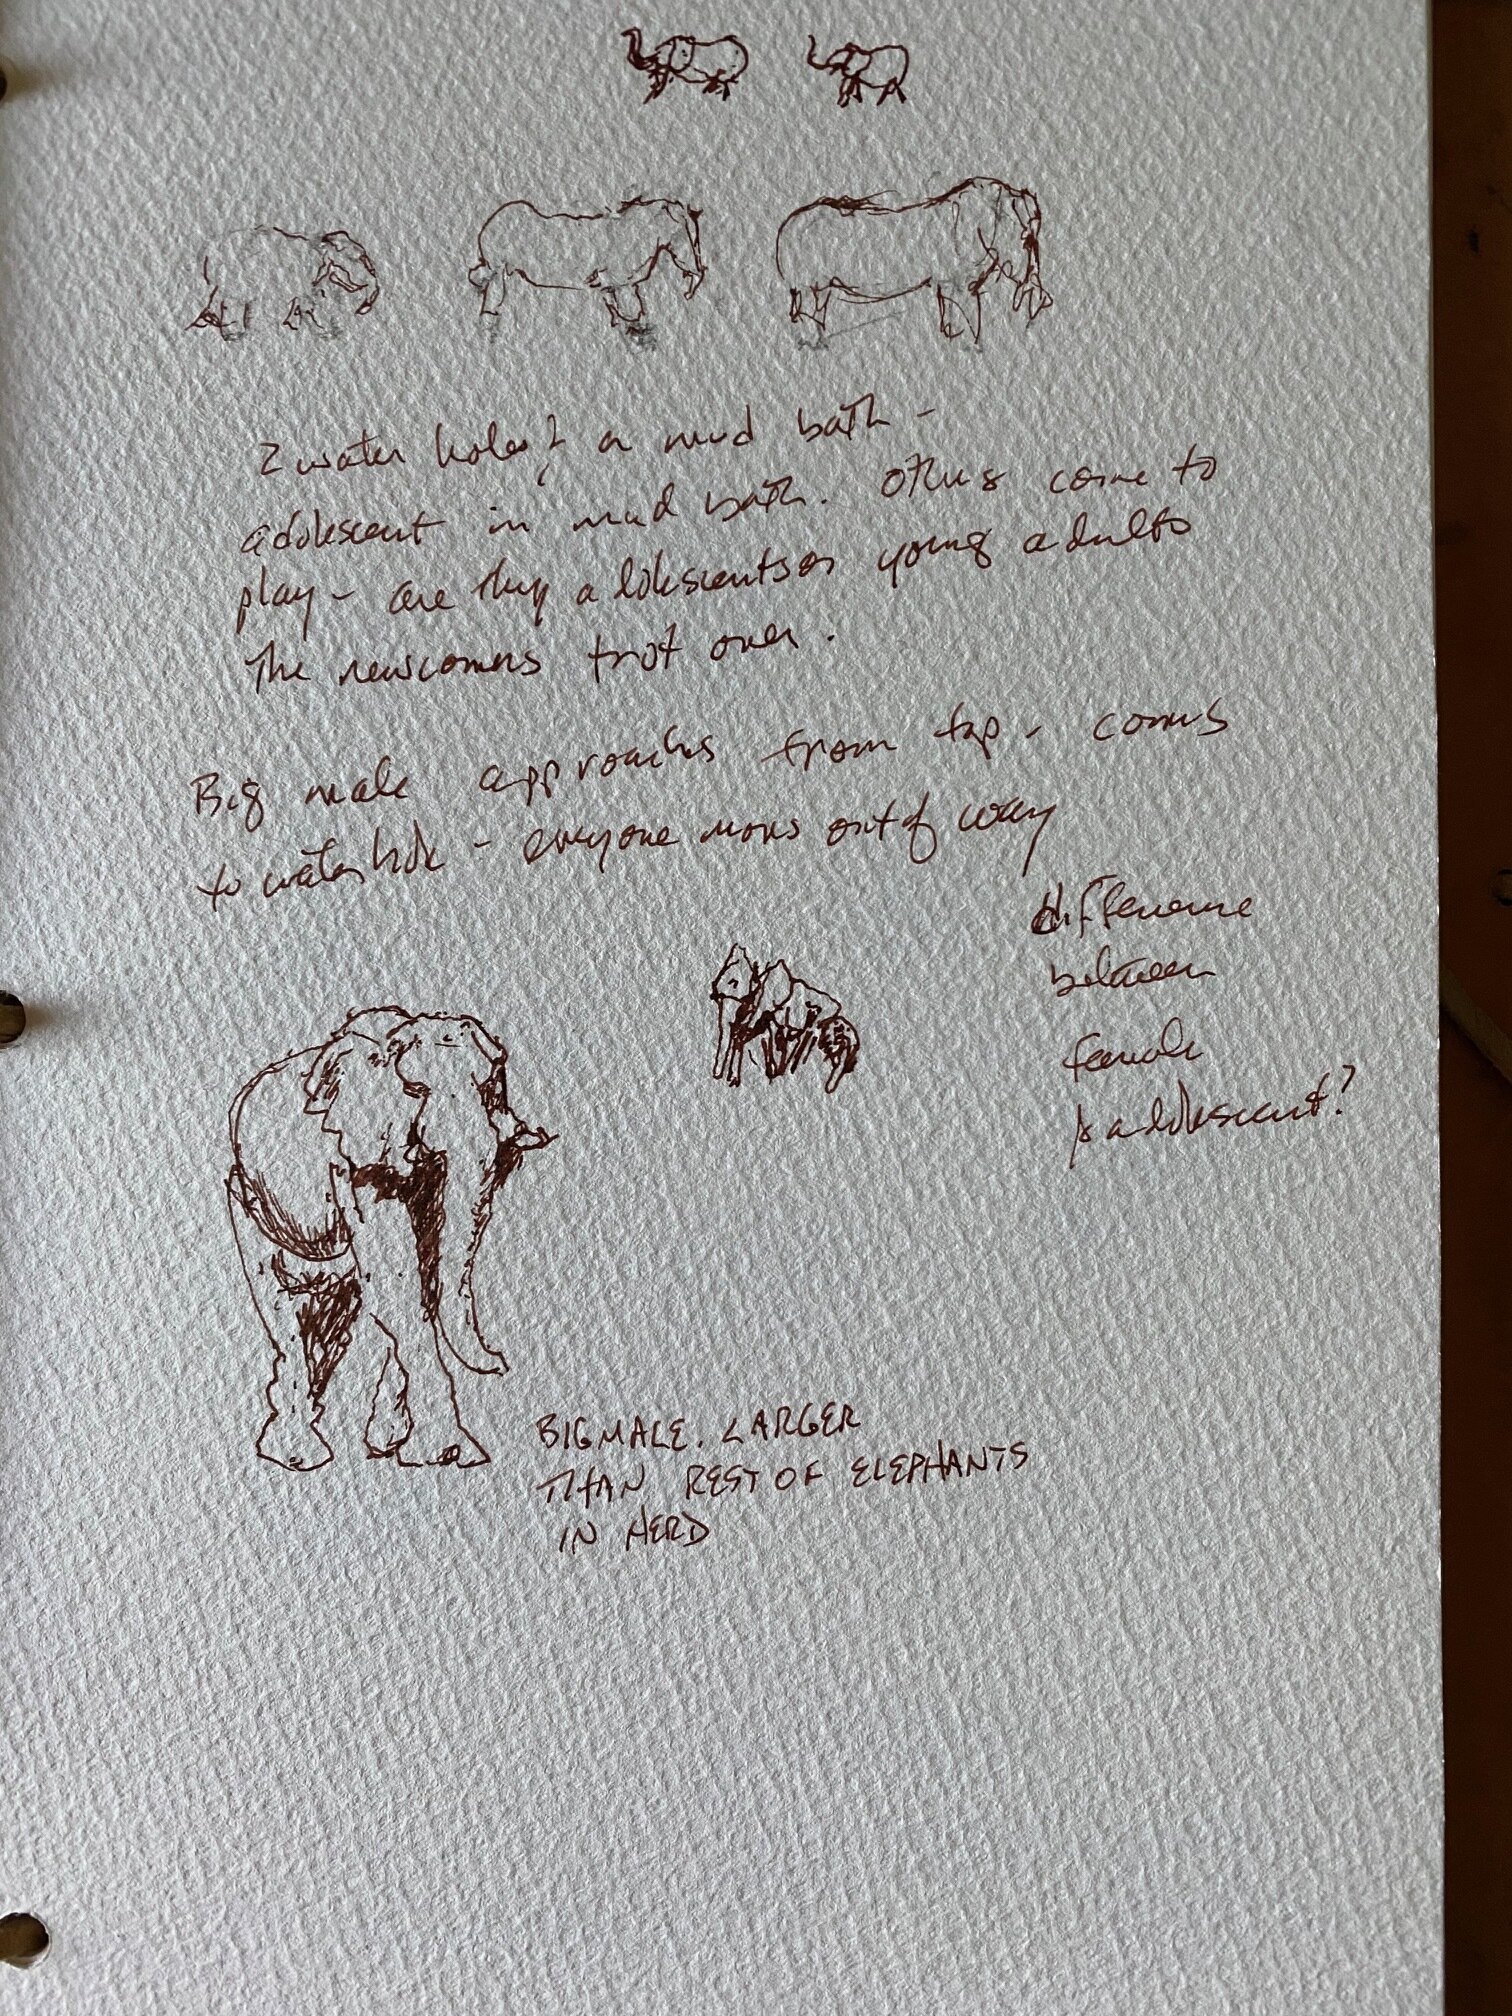 2 water holes & a mud bath -
adolescent in mud bath. Others come to
play - are they adolescents or young adults
The newcomers trot over.
Big male approaches from top - comes
to waterhole - everyone moves out of way
difference
between
female
& adolescent?
BIG MALE. LARGER
THAN REST OF ELEPHANTS
IN HERD